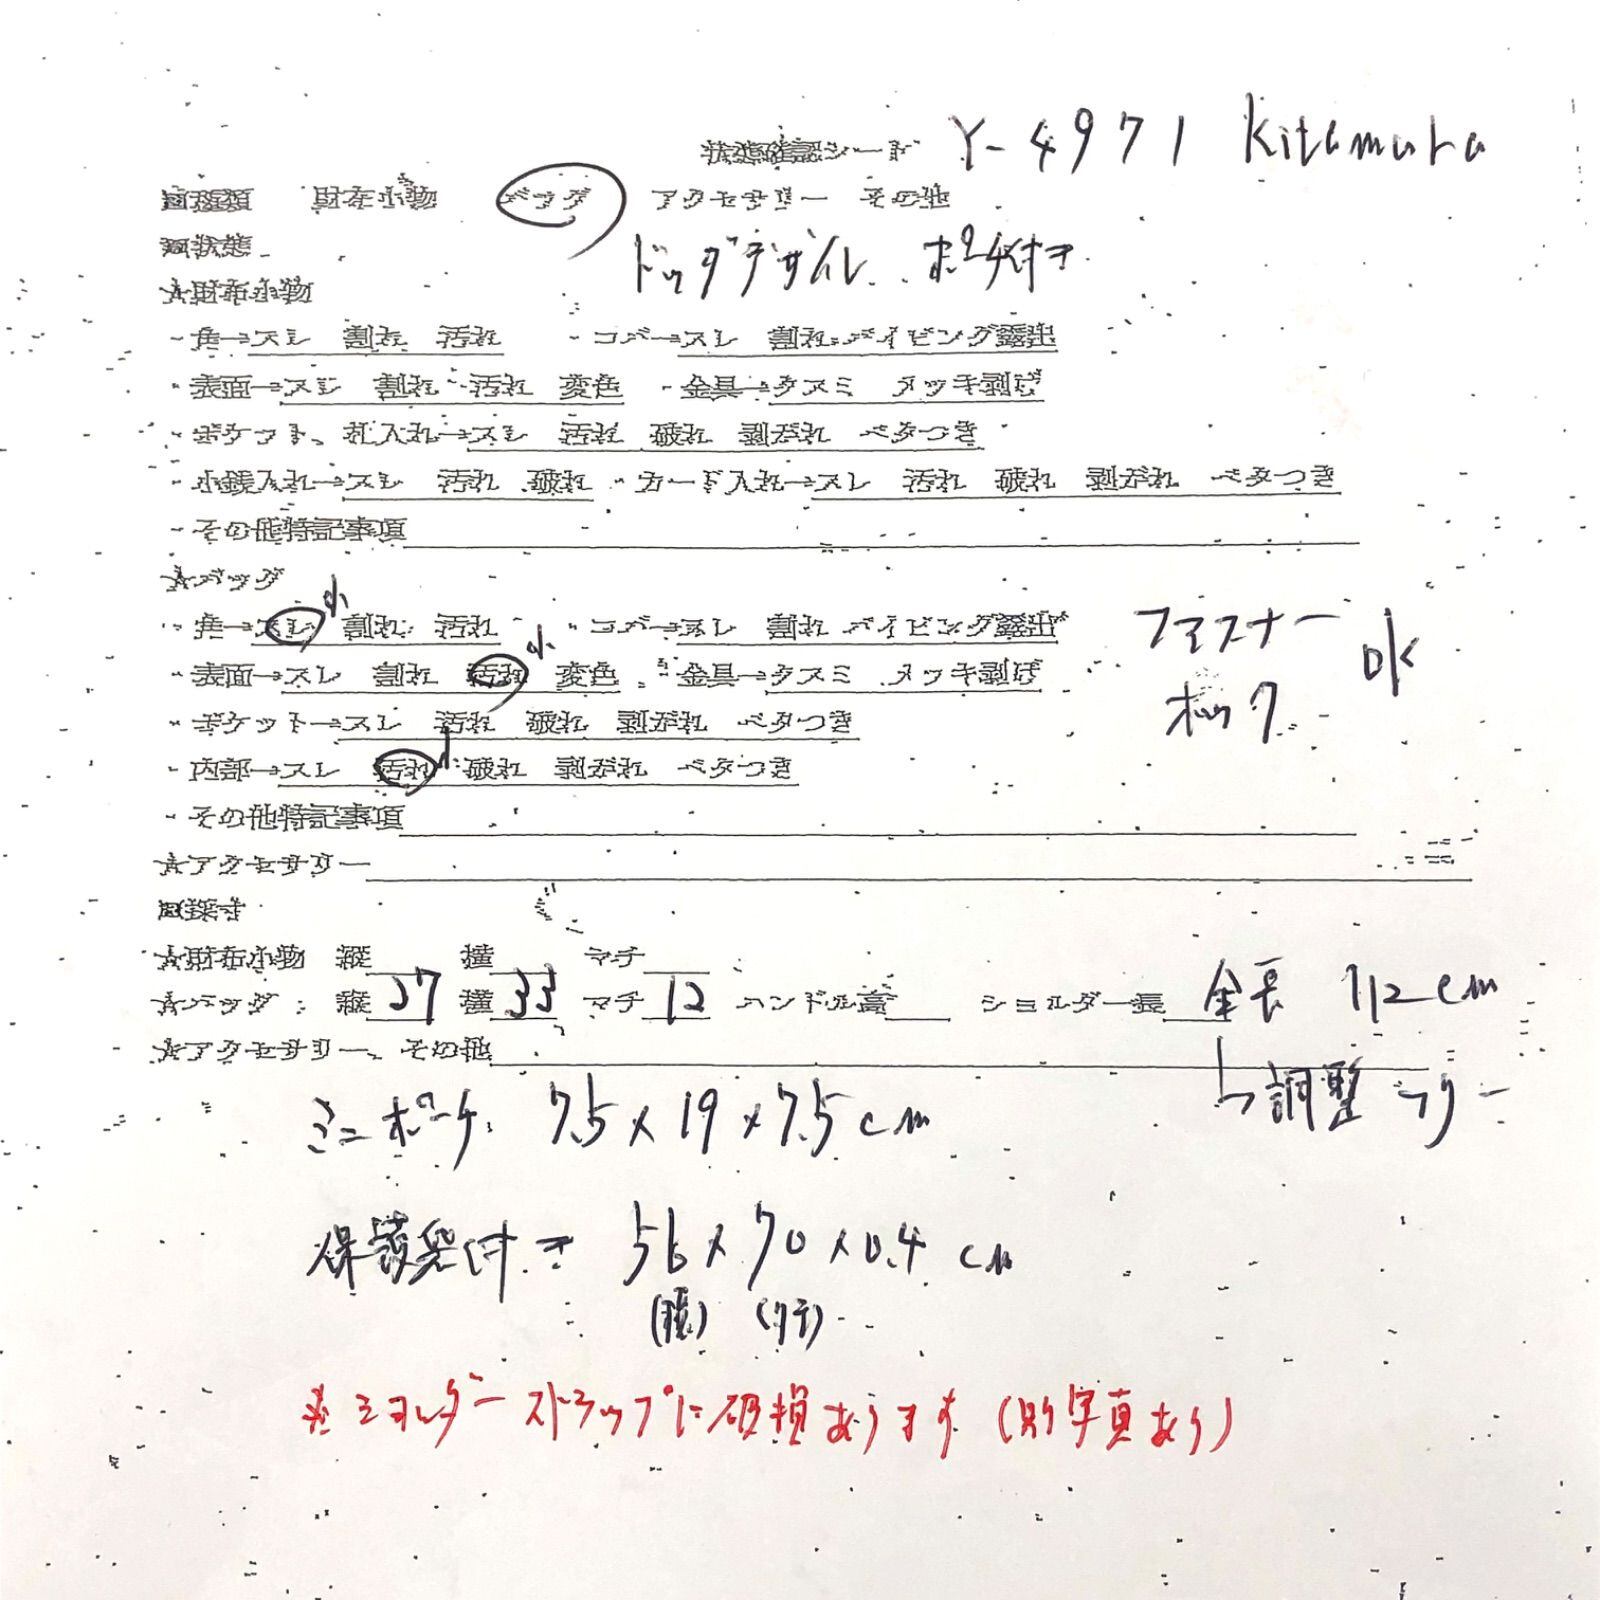 状態確認シート Y-4971 Kitamura
■種類 財布小物 バッグ アクセサリー その他
■状態 ドッグデザイン ポーチ付き
☆財布小物
・角→スレ 割れ 汚れ ・コバ→スレ 割れ パイピング露出
・表面→スレ 割れ 汚れ 変色 ・金具→クスミ メッキ剥げ
・ポケット、札入れ→スレ 汚れ 破れ 剥がれ ベタつき
・小銭入れ→スレ 汚れ 破れ ・カード入れ→スレ 汚れ 破れ 剥がれ ベタつき
・その他特記事項
☆バッグ
・角→スレ 小 割れ 汚れ ・コバ→スレ 割れ パイピング露出 ファスナー
・表面→スレ 割れ 汚れ 小 変色 ・金具→クスミ メッキ剥げ OK
・ポケット→スレ 汚れ 破れ 剥がれ ベタつき ホック
・内部→スレ 汚れ 小 破れ 剥がれ ベタつき
・その他特記事項
☆アクセサリー
■採寸
☆財布小物 縦 横 マチ
☆バッグ: 縦 27 横 33 マチ 12 ハンドル高 ショルダー長 全長 112cm
☆アクセサリー、その他 ↳調整フリー
ミニポーチ: 7.5×19×7.5cm
保護袋付き 56×70×0.4cm
(横) (タテ)
※ショルダーストラップに破損あります(別写真あり)